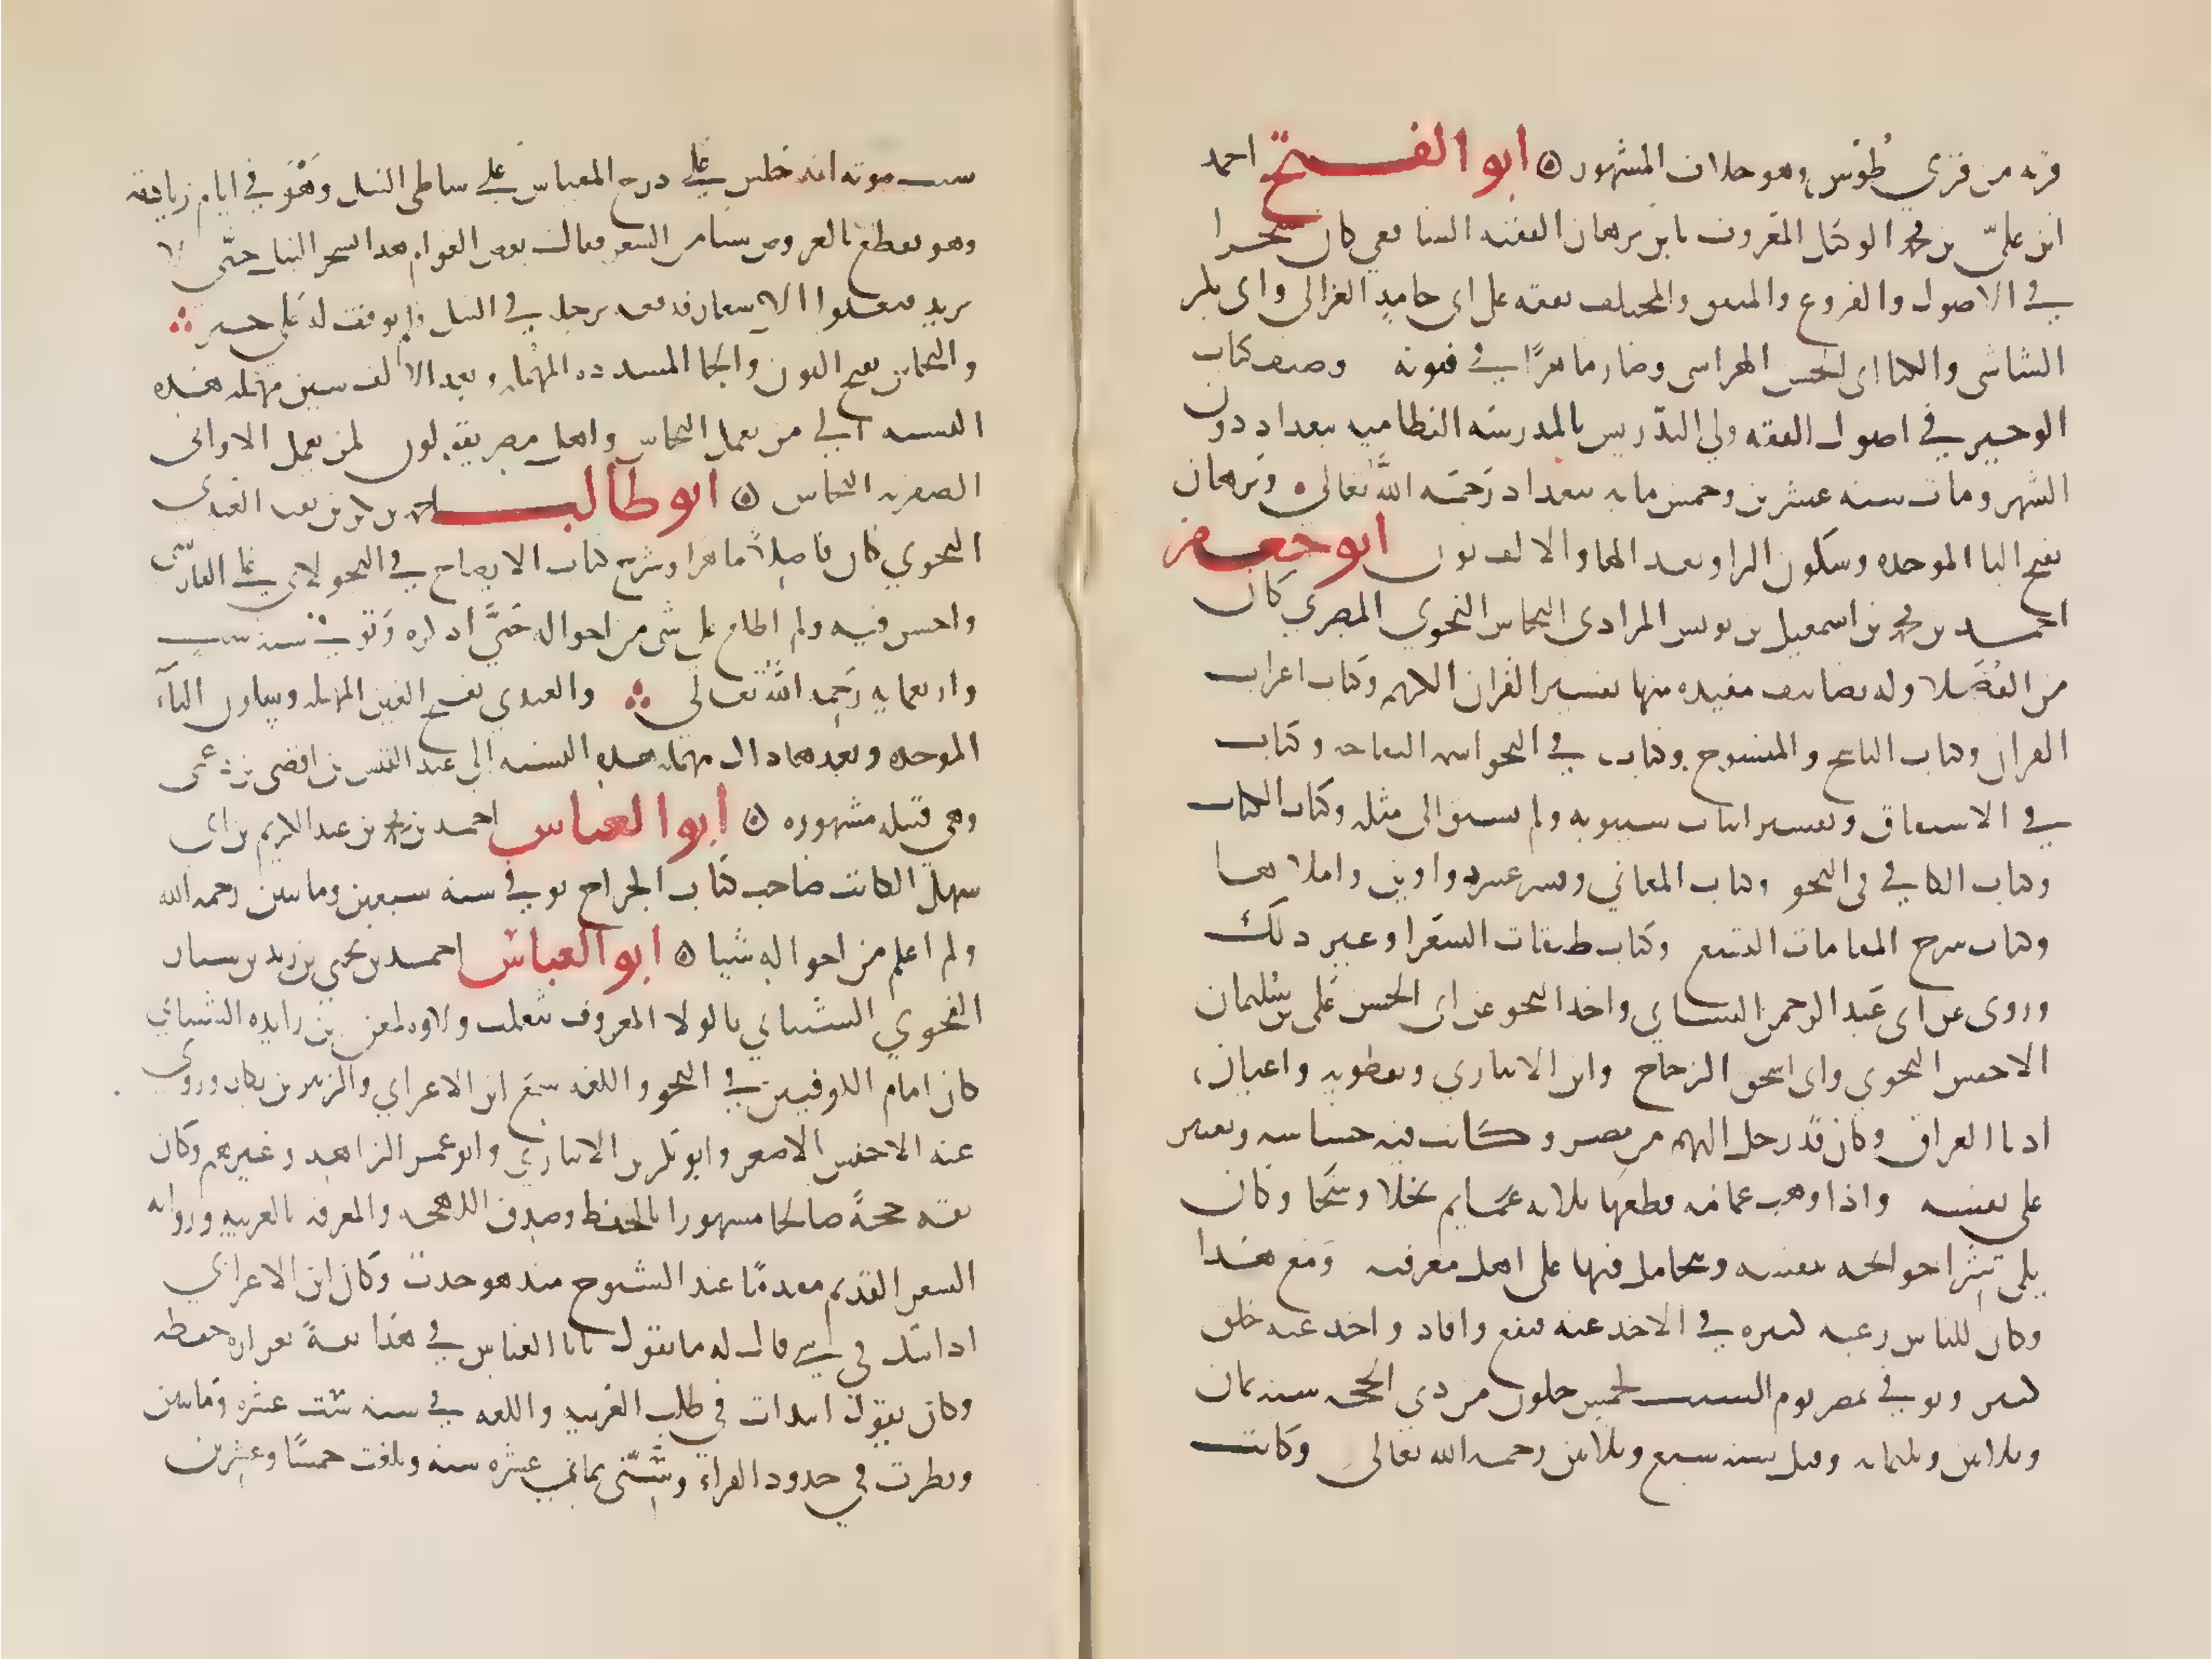 قريه من قرى طوس وهو خلاف المشهور ۞ ابو الفتح احمد
ابن علي بن محمد الوكيل المعروف بابن برهان الفقيه الشافعي كان متبحرا
في الاصول والفروع والمتفق والمختلف تفقه على ابي حامد الغزالي وابي بكر
الشاشي والكيا ابي الحسن الهراسي وصار ماهرًا في فنونه وصنف كتاب
الوجيز في اصول الفقه ولي التدريس بالمدرسه النظاميه ببغداد دون
الشهر ومات سنه عشرين وخمس مايه ببغداد رَحمَه الله تعالى وبرهان
بفتح البا الموحده وسكون الرا وبعد الها والالف نون ابو جعفر
احمد بن محمد بن اسمعيل بن يونس المرادي النحاس النحوي المصري كان
من الفُضَلا وله تصانيف مفيده منها تفسير القران الكريم وكتاب اعراب
القران وكتاب الناسخ والمنسوخ وكتاب في النحو اسمه التفاحه وكتاب
في الاشتقاق وتفسير ابيات سيبويه ولم يسبق الى مثله وكتاب الكتاب
وكتاب الكافي في النحو وكتاب المعاني وفسر عشره دواوين واملاها
وكتاب شرح المعلقات السبع وكتاب طبقات الشعرا وغير ذلك
وروى عن ابي عبد الرحمن النسائي واخذ النحو عن ابي الحسن علي بن سليمان
الاخفش النحوي وابي اسحق الزجاج وابن الانباري ونفطويه واعيان
ادبا العراق وكان قد رحل اليهم من مصر وكانت فيه خساسه وتقتير
على نفسه واذا وهب عمامه قطعها ثلاثه عمايم بخلا وشحا وكان
يلي شرا حوايجه بنفسه ويتحامل فيها على اهل معرفته ومع هذا
وكان للناس رغبه كثيره في الاخذ عنه فنفع وافاد واخذ عنه خلق
كثير وتوفي بمصر يوم السبت لخمس خلون من ذي الحجه سنه ثمان
وثلاثين وثلثمايه وقيل سنه سبع وثلاثين رحمه الله تعالى وكانت
سبب موته انه جلس على درج المقياس على شاطي النيل وهو في ايام زيادته
وهو يقطع بالعروض شيا من الشعر فقال بعض العوام هذا يسحر النيل حتى لا
يزيد فتغلوا الاسعار فدفعه برجله في النيل ولم يوقف له على خبر
والنحاس بفتح النون والحا المشدده المهمله وبعد الالف سين مهمله هذه
النسبه الى من يعمل النحاس واهل مصر يقولون لمن يعمل الاواني
الصفريه النحاس ۞ ابو طالب احمد بن بكر بن بقيه العبدي
النحوي كان فاضلاً ماهرا وشرح كتاب الايضاح في النحو لابي علي الفارسي
واحسن فيه ولم اطلع على شي من احواله حَتَّى اذكره وتوفي سنه ست
واربعمايه رَحِمه الله تعالى والعبدي بفتح العين المهمله وسكون البآء
الموحده وبعدها دال مهمله هذه النسبه الى عبد القيس بن افصى بن دعمى
وهي قبيله مشهوره ۞ ابو العباس احمد بن محمد بن عبد الكريم بن ابي
سهل الكاتب صاحب كتاب الخراج توفي سنه سبعين ومايتين رحمه الله
ولم اعلم من احواله شيا ۞ ابو العباس احمد بن يحيى بن زيد بن سيار
النحوي الشيباني بالولا المعروف بثعلب وولاوه لمعن بن زايده الشيباني
كان امام الكوفيين في النحو واللغه سمع ابن الاعرابي والزبير بن بكار وروى
عنه الاخفش الاصغر وابو بكر بن الانباري وابو عمر الزاهد وغيرهم وكان
ثقه حجةً صالحا مشهورا بالحفظ وصدق اللهجه والمعرفه بالعربيه وروايه
الشعر القديم مقدمًا عند الشيوخ منذ هو حدث وكان ابن الاعرابي
اذا شك في شي قال له ما تقول يا ابا العباس في هذا ثقةً بغزاره حفظه
وكان يقول ابتدات في طلب العربيه واللغه في سنه ست عشره ومايتين
ونظرت في حدود الفراء وسِنّي ثماني عشره سنه وبلغت خمسًا وعشرين